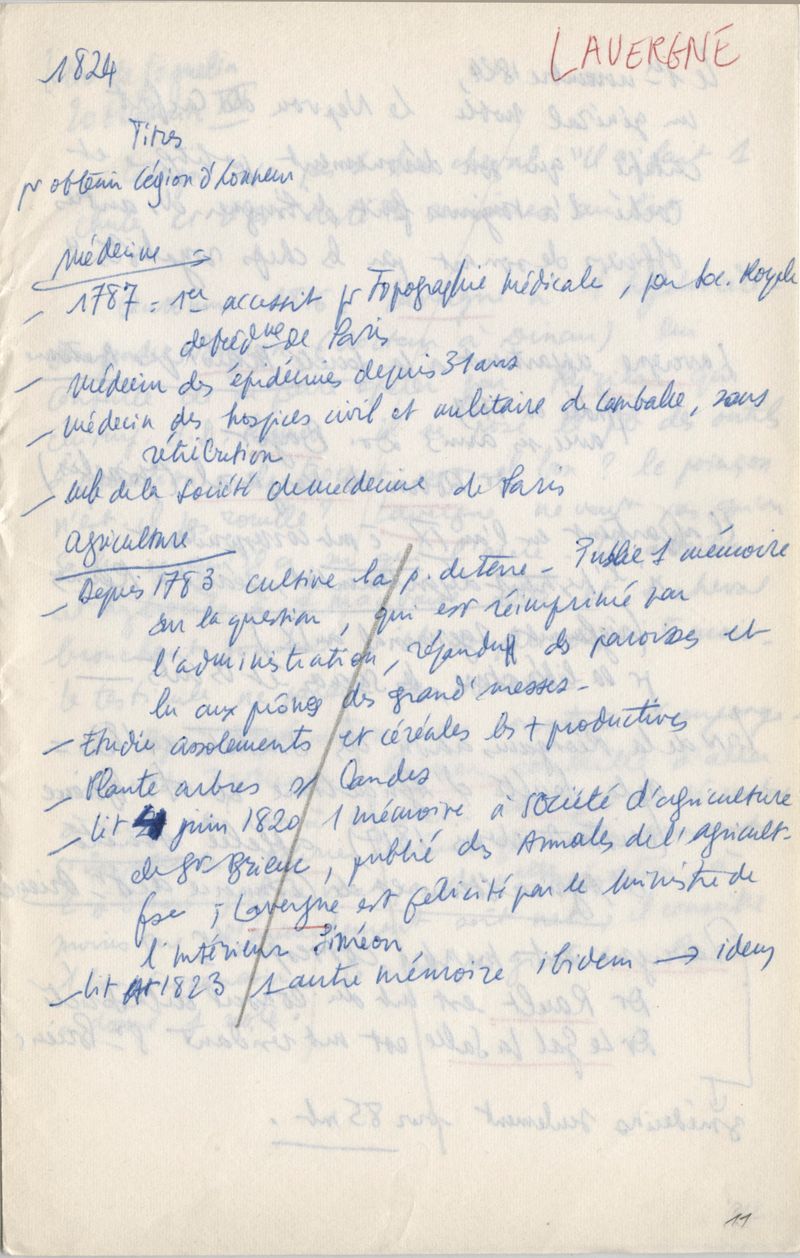 LAVERGNE
1824
Titres
pr obtenir Légion d'honneur
Médecine -
- 1787 = 1er accessit pr Topographie Médicale, par Soc. Royale
de Médne de Paris
- Médecin des épidémies depuis 31 ans
- Médecin des hospices civil et militaire de Lamballe, sans
rétribution
- mb de la Société de médecine de Paris
Agriculture
- Depuis 1783 cultive la p. de terre - Publie 1 mémoire
sur la question, qui est réimprimé par
l'administration, répandu ds paroisses et
lu aux prônes des grand'messes -
- Etudie assolements et céréales les + productives
- Plante arbres sr Landes
- Lit juin 1820 1 mémoire à Société d'agriculture
de St Brieuc, publié ds Annales de l'agricult-
fse ; Lavergne est felicité par le Ministre de
l'Intérieur Siméon
- Lit 1823 1 autre mémoire ibidem → idem
11